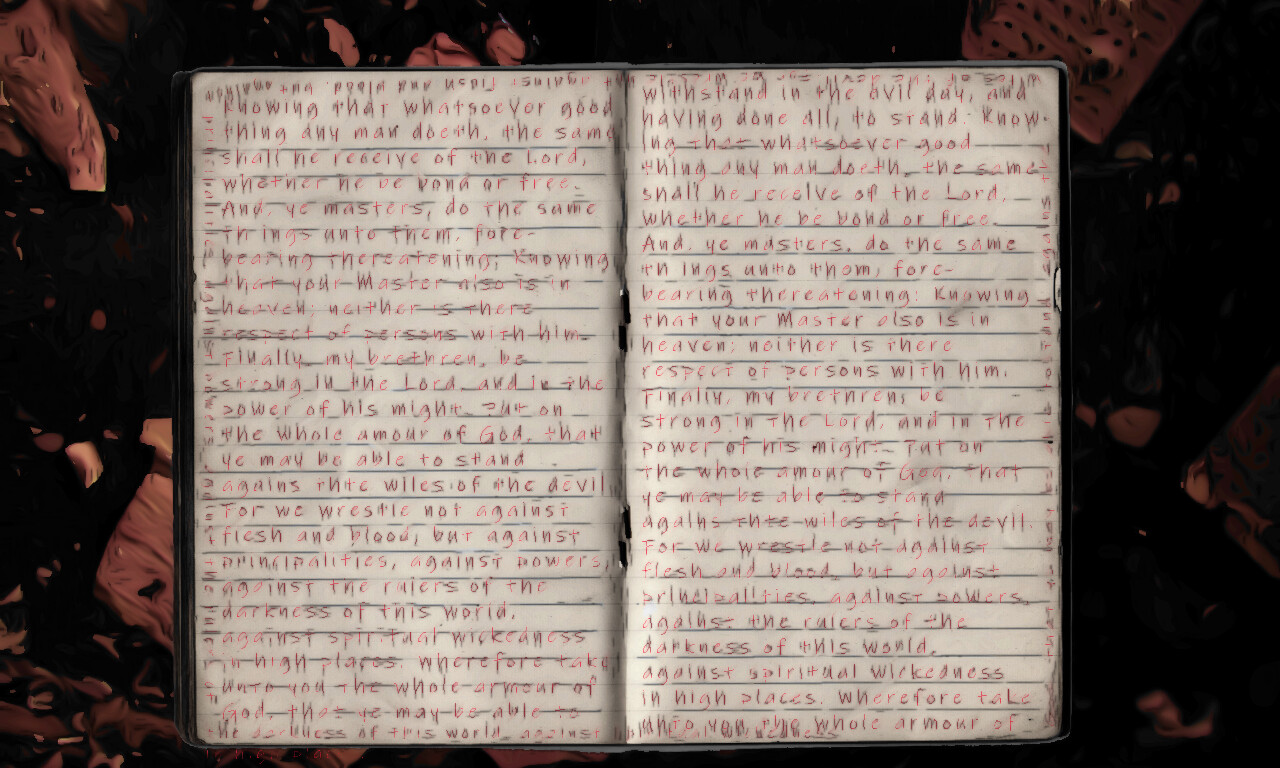 Knowing that whatsoever good
thing any man doeth, the same
shall he receive of the Lord,
whether he be bond or free.
And, ye masters, do the same
things unto them, fore-
bearing thereatening; Knowing
that your Master also is in
heaven; neither is there
respect of persons with him.
Finally, my brethren, be
strong in the Lord, and in the
power of his might. Put on
the whole amour of God, that
ye may be able to stand
agains thte wiles of the devil
For we wrestle not against
flesh and blood, but against
principalities, against powers,
against the rulers of the
darkness of this world,
against spiritual wickedness
in high places. Wherefore take
unto you the whole armour of
God, that ye may be able to
the darkness of this world, against
withstand in the evil day, and
having done all, to stand. Know-
ing that whatsoever good
thing any man doeth, the same
shall he receive of the Lord,
whether he be bond or free.
And, ye masters, do the same
things unto them, fore-
bearing thereatening; Knowing
that your Master also is in
heaven; neither is there
respect of persons with him.
Finally, my brethren, be
strong in the Lord, and in the
power of his might. Put on
the whole amour of God, that
ye may be able to stand
agains thte wiles of the devil.
For we wrestle not against
flesh and blood, but against
principalities, against powers,
against the rulers of the
darkness of this world,
against spiritual wickedness
in high places. Wherefore take
unto you the whole armour of